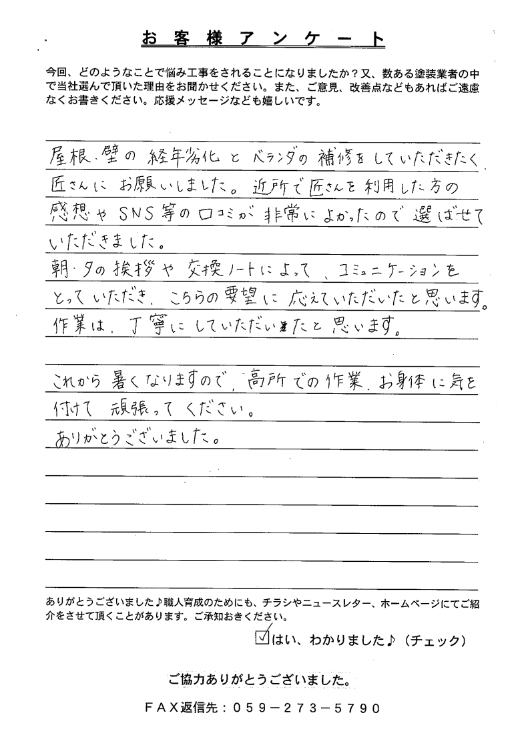 お客様アンケート
今回、どのようなことで悩み工事をされることになりましたか？又、数ある塗装業者の中
で当社選んで頂いた理由をお聞かせください。また、ご意見、改善点などもあればご遠慮
なくお書きください。応援メッセージなども嬉しいです。
屋根・壁の経年劣化とベランダの補修をしていただきたく
匠さんにお願いしました。近所で匠さんを利用した方の
感想やSNS等の口コミが非常によかったので選ばせて
いただきました。
朝・夕の挨拶や交換ノートによって、コミュニケーションを
とっていただき、こちらの要望に応えていただいたと思います。
作業は、丁寧にしていただいたと思います。
これから暑くなりますので、高所での作業、お身体に気を
付けて頑張ってください。
ありがとうございました。
ありがとうございました♪職人育成のためにも、チラシやニュースレター、ホームページにてご紹
介をさせて頂くことがあります。ご承知おきください。
☑はい、わかりました♪（チェック）
ご協力ありがとうございました。
ＦＡＸ返信先：０５９－２７３－５７９０